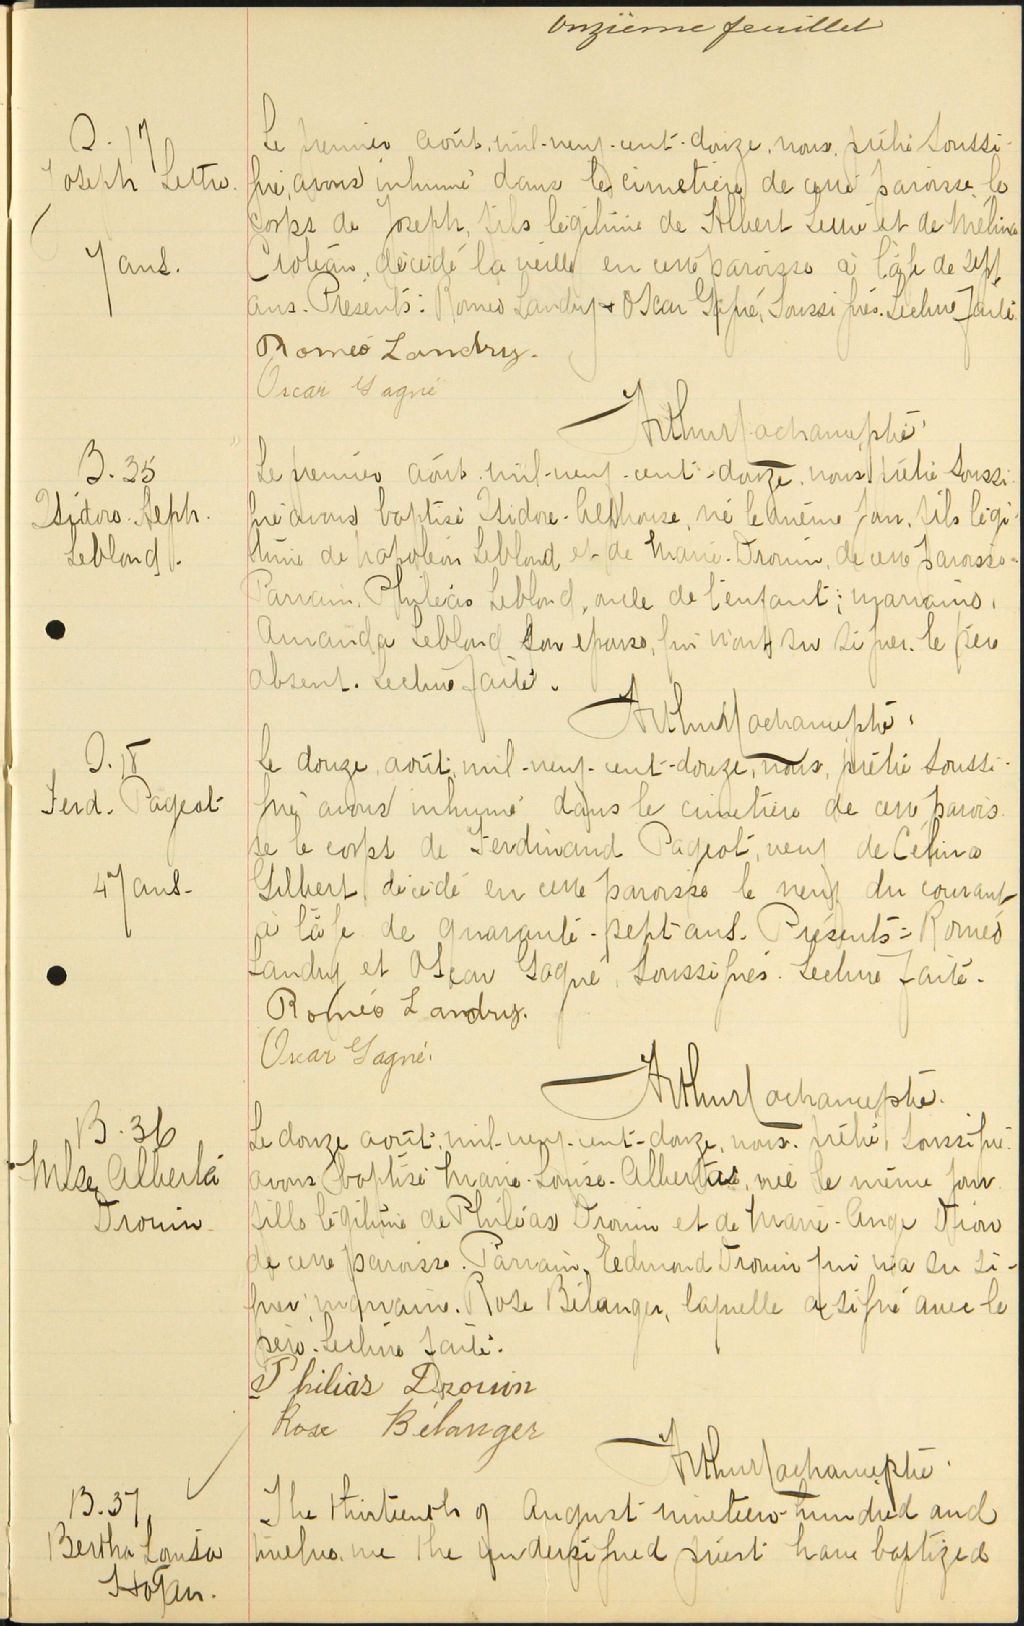 Onzième feuillet
S. 17
Joseph Lettre.
7 ans.
Le premier août, mil-neuf-cent-douze, nous, prêtre soussi-
gné, avons inhumé dans le cimetière de cette paroisse, le
corps de Joseph, fils légitime de Albert Lettre et de Mélina
Croteau, décédé la veille en cette paroisse à l'âge de sept
ans. Présents: Roméo Landry & Oscar Gagné, soussignés. Lecture faite.
Roméo Landry.
Oscar Gagné
Arthur Lachance, ptre.
B. 35
Isidore Alph.
Leblond.
Le premier août mil-neuf-cent-douze, nous prêtre soussi-
gné avons baptisé Isidore-Alphonse, né le même jour, fils légi-
time de Napoléon Leblond et de Marie Drouin, de cette paroisse.
Parrain, Philéas Leblond, oncle de l'enfant; marraine,
Amanda Leblond son épouse, qui n'ont su signer. le père
absent. Lecture faite.
Arthur Lachance, ptre.
S. 18
Ferd. Pageot
47 ans.
Le douze, août, mil-neuf-cent-douze, nous, prêtre soussi-
gné avons inhumé dans le cimetière de cette parois-
se le corps de Ferdinand Pageot, veuf de Célina
Gilbert, décédé en cette paroisse le neuf du courant
à l'âge de quarante-sept ans. Présents: Roméo
Landry et Oscar Gagné, soussignés. Lecture faite.
Roméo Landry.
Oscar Gagné.
Arthur Lachance, ptre.
B. 36
Mlse Alberta
Drouin
Le douze août, mil-neuf-cent-douze, nous, prêtre, soussigné
avons baptisé Marie-Louise-Alberta, née le même jour
fille légitime de Philéas Drouin et de Marie-Ange Dion
de cette paroisse. Parrain, Edmond Drouin qui n'a su si-
gner marraine. Rose Bélanger, laquelle a signé avec le
père. Lecture faite.
Philias Drouin
Rose Bélanger
Arthur Lachance, ptre.
B. 37
Bertha Louisa
Hogan.
The thirteenth of August nineteen-hundred and
twelve, we the undersigned priest have baptized